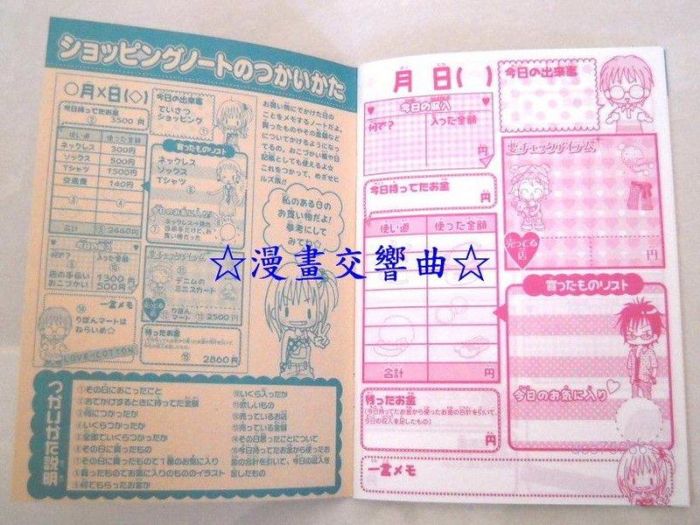 ショッピングノートのつかいかた
○月×日(◇)
今日持ってたお金
② 3500円
使い道 使った金額
ネックレス 300円
ソックス 500円
Tシャツ 1500円
交通費 140円
合計
今日の出来事
ていさつ
ショッピング
買ったものリスト
ネックレス
ソックス
Tシャツ
今日のお気に入り
お買い物にでかけた日の
ことをメモするノートだよ。
私のある日の
お買い物だよ!
参考にして
みてね☆
店の手伝い 1300円
おこづかい 500円
デニムの
ミニスカート
りぼん
マート
2500円
一言メモ
りぼんマートは
ねらいめ☆
LOVE-COTTON
残ったお金
2860円
つかいかた説明
①その日におこったこと
②おでかけするときに持ってた金額
③何につかったか
④いくらつかったか
⑤全部でいくらつかったか
⑥その日に買ったもの
⑦買ったもので1番のお気に入り
⑧買ったものでお気に入りのもののイラスト
⑨何でもらったお金か
⑩いくら入ったか
⑪欲しいもの
⑫売ってるお店
⑬売っている金額
⑭その日思ったことについて
⑮今日持ってたお金から使ったお
金の合計を引いて、今日の収入を
足したもの
月 日( )
今日の出来事
今日の収入
何で? 入った金額
円
今日持ってたお金
円
使い道 使った金額
合計 円
残ったお金
(今日持ってたお金から使ったお金の合計を引いて、
今日の収入を足したもの)
円
一言メモ
チェックアイテム
売ってる
店
円
買ったものリスト
今日のお気に入り
☆漫畫交響曲☆